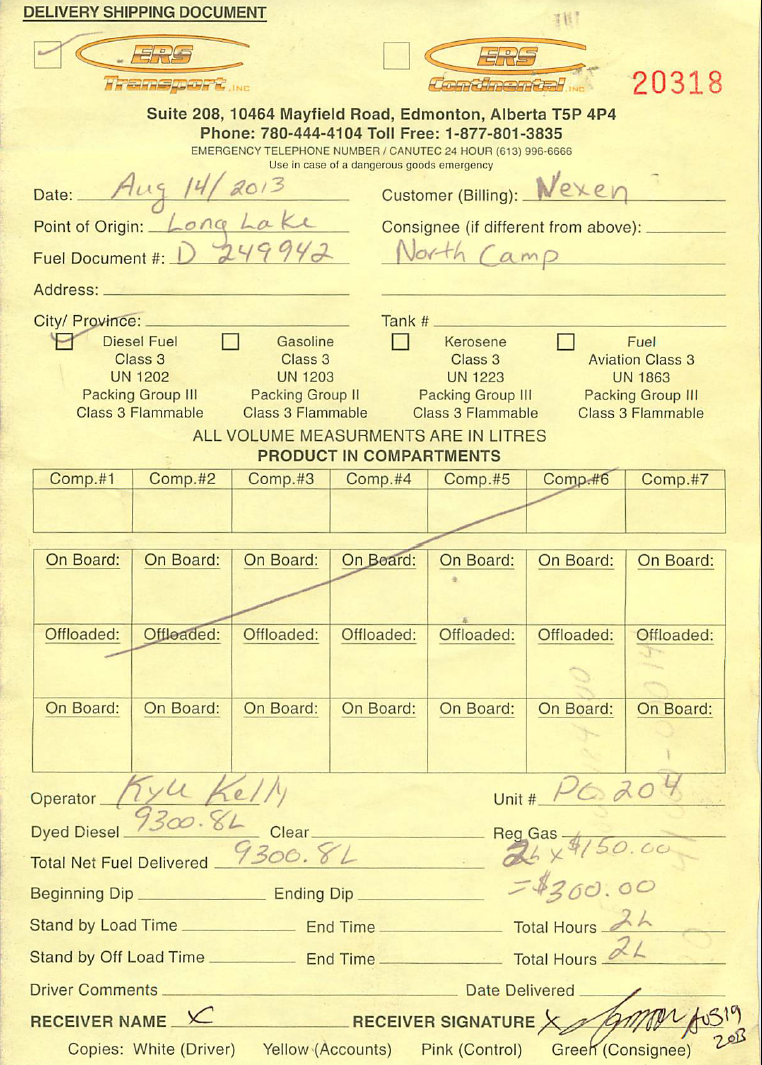 DELIVERY SHIPPING DOCUMENT
ERS Transport .INC
ERS Continental .INC
20318
Suite 208, 10464 Mayfield Road, Edmonton, Alberta T5P 4P4
Phone: 780-444-4104 Toll Free: 1-877-801-3835
EMERGENCY TELEPHONE NUMBER / CANUTEC 24 HOUR (613) 996-6666
Use in case of a dangerous goods emergency
Date: Aug 14/2013 Customer (Billing): Nexen
Point of Origin: Long Lake Consignee (if different from above):
Fuel Document #: D 249942 North Camp
Address:
City/ Province: Tank #
Diesel Fuel Gasoline Kerosene Fuel
Class 3 Class 3 Class 3 Aviation Class 3
UN 1202 UN 1203 UN 1223 UN 1863
Packing Group III Packing Group II Packing Group III Packing Group III
Class 3 Flammable Class 3 Flammable Class 3 Flammable Class 3 Flammable
ALL VOLUME MEASURMENTS ARE IN LITRES
PRODUCT IN COMPARTMENTS
Comp.#1 Comp.#2 Comp.#3 Comp.#4 Comp.#5 Comp.#6 Comp.#7
On Board: On Board: On Board: On Board: On Board: On Board: On Board:
Offloaded: Offloaded: Offloaded: Offloaded: Offloaded: Offloaded: Offloaded:
On Board: On Board: On Board: On Board: On Board: On Board: On Board:
Operator Kyle Kelly Unit # PO 204
Dyed Diesel 9300.8L Clear Reg Gas
Total Net Fuel Delivered 9300.8L 2h x $150.00
Beginning Dip Ending Dip = $300.00
Stand by Load Time End Time Total Hours 2h
Stand by Off Load Time End Time Total Hours 2h
Driver Comments Date Delivered
RECEIVER NAME X RECEIVER SIGNATURE X AUG 19
2013
Copies: White (Driver) Yellow (Accounts) Pink (Control) Green (Consignee)